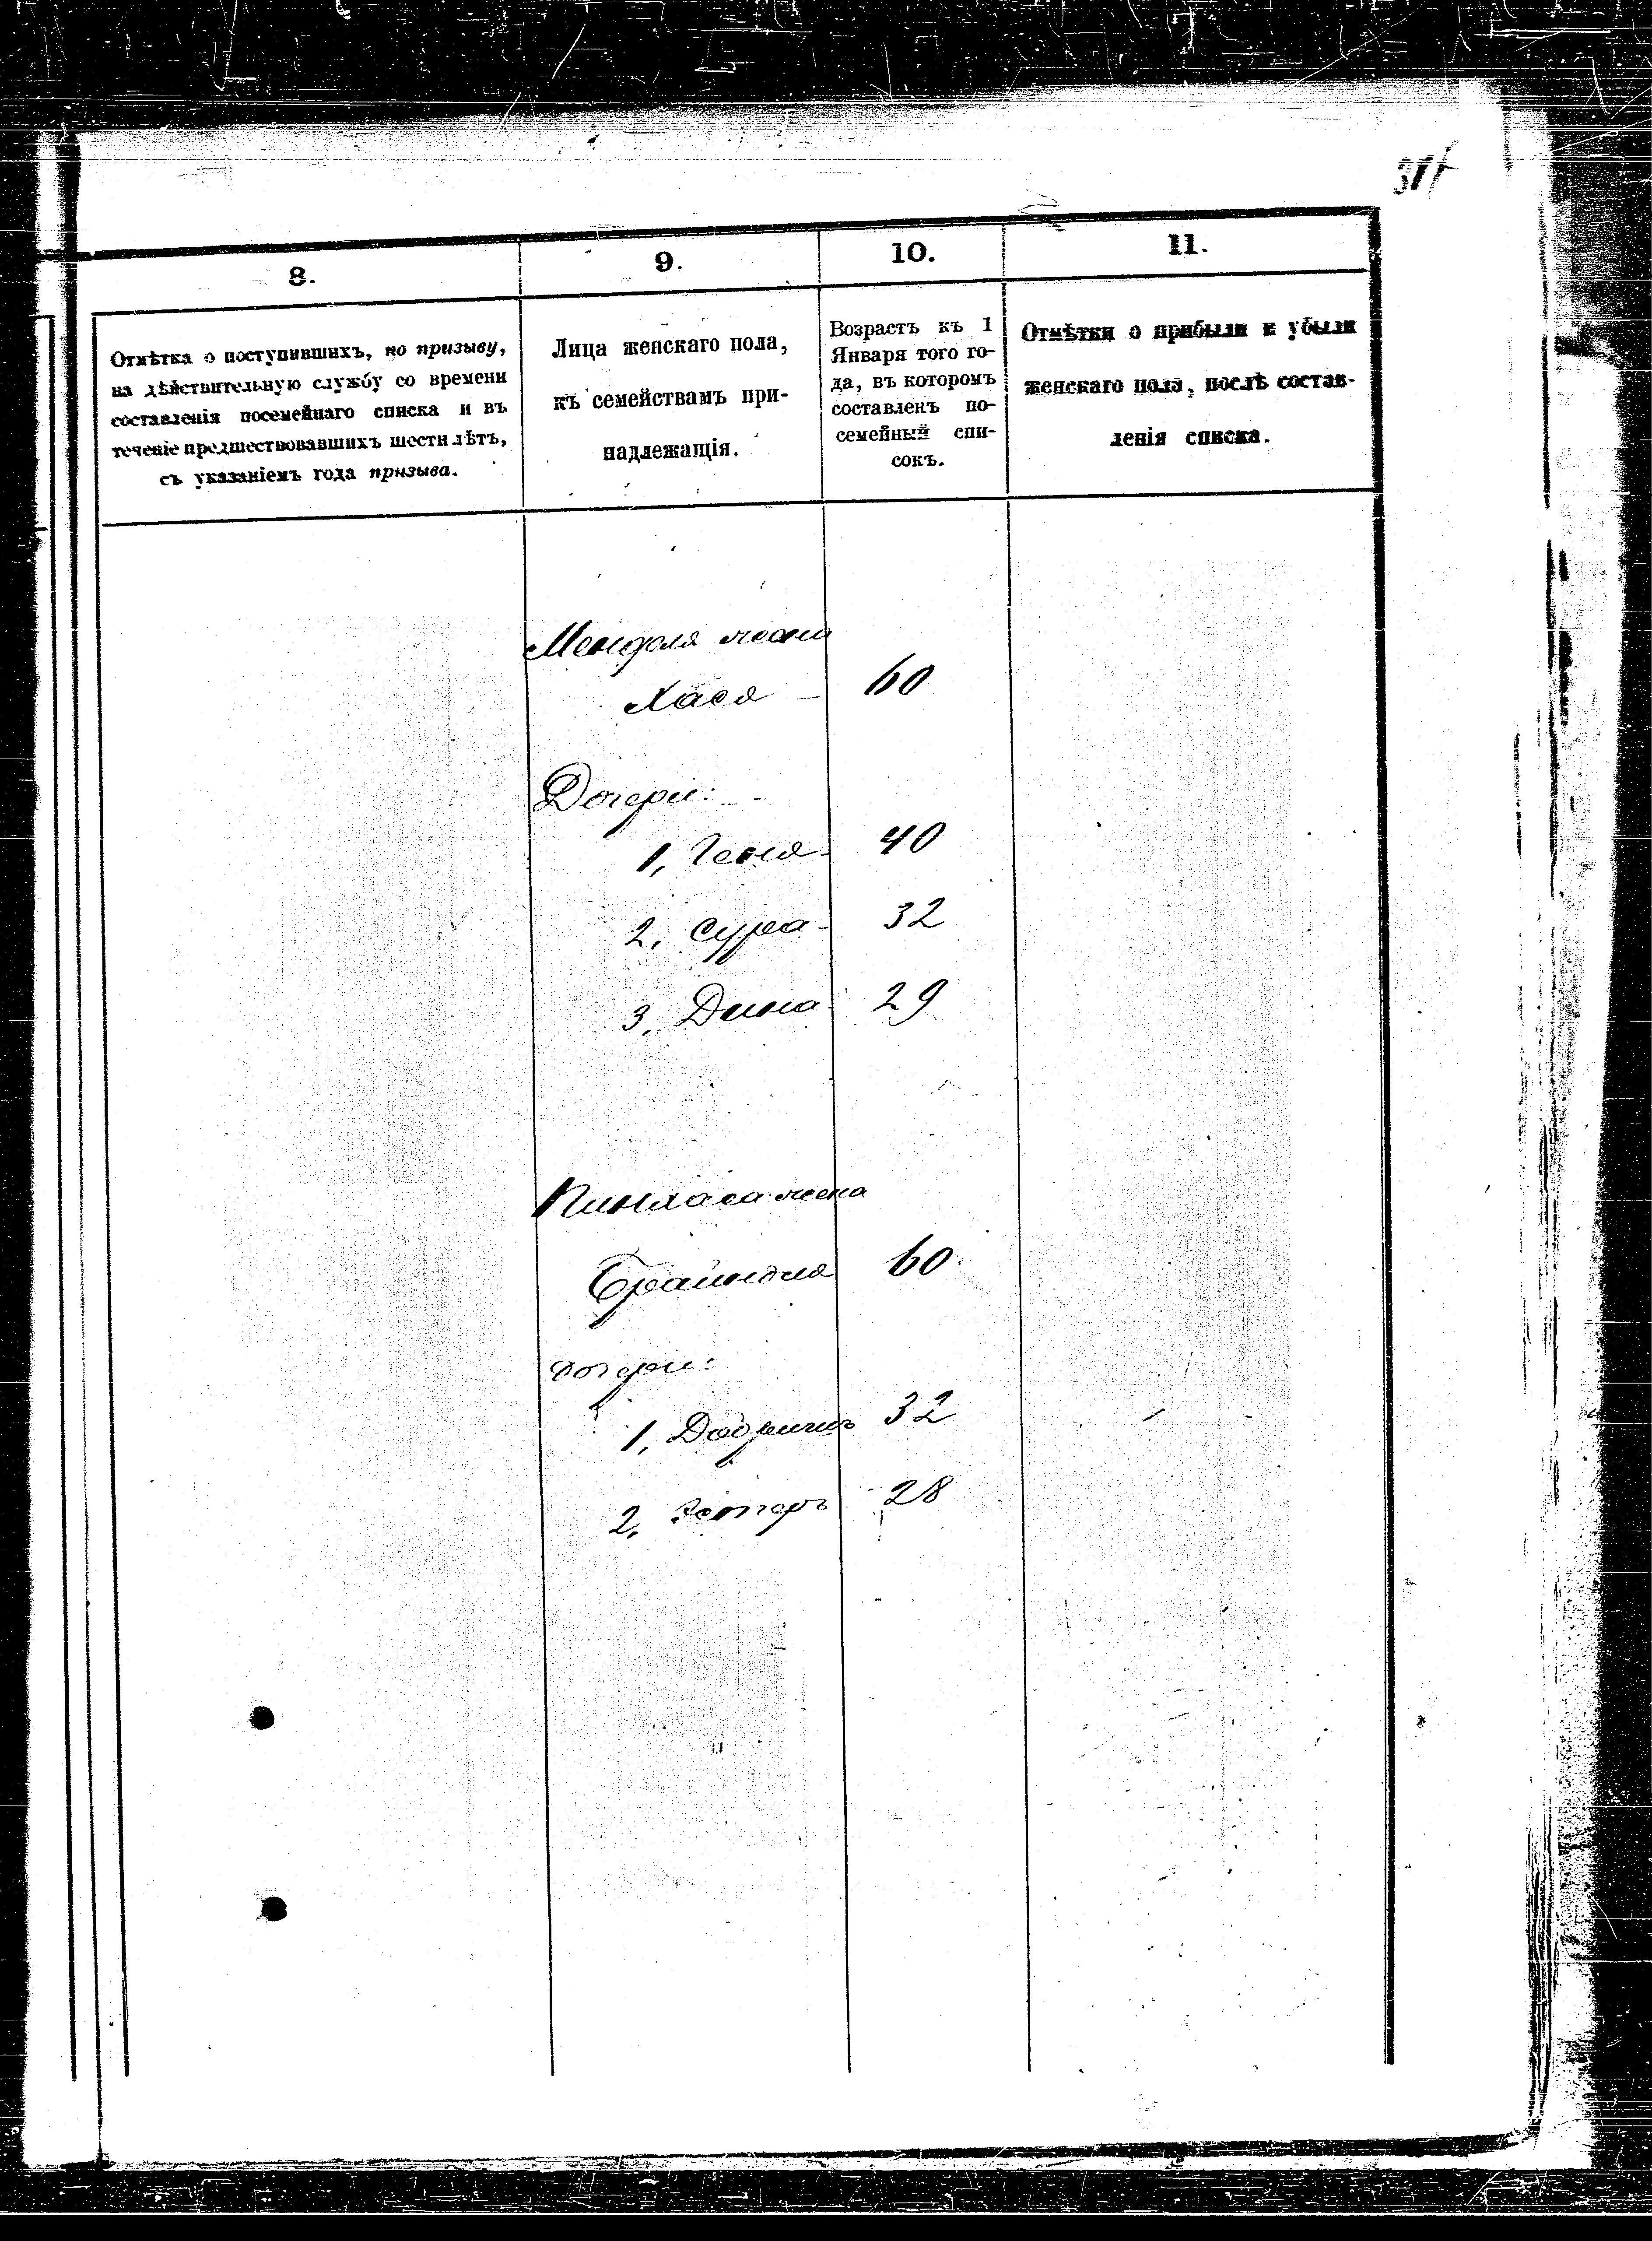 8.
9.
10.
11.
Отмѣтка о поступившихъ, по призыву,
на дѣйствительную службу со времени
составленія посемейнаго списка и въ
теченіе предшествовавшихъ шести лѣтъ,
съ указаніемъ года призыва.
Лица женскаго пола,
къ семействамъ при-
надлежащія.
Возрастъ къ 1
Января того го-
да, въ которомъ
составленъ по-
семейный спи-
сокъ.
Отмѣтки о прибыли и убыли
женскаго пола, послѣ состав-
ленія списка.
Менделя жена
Хася 60
Дочери:
1, Геня 40
2, Сура 32
3, Дина 29
Пинхаса жена
Брайндля 60
дочери:
1, 32
2, Эстеръ 28